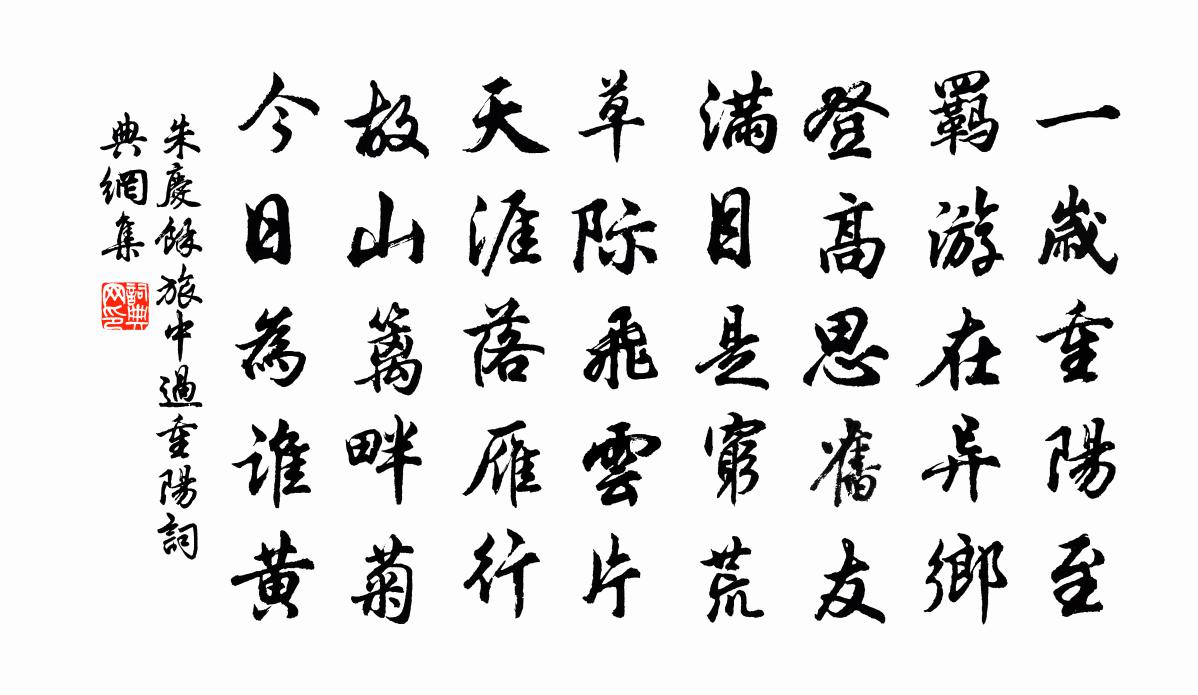 一歲重陽至
羈游在异鄉
登高思舊友
滿目是窮荒
草际飛雲片
天涯落雁行
故山籬畔菊
今日為誰黃
朱慶餘旅中過重陽詞
典網集
詞典
网印